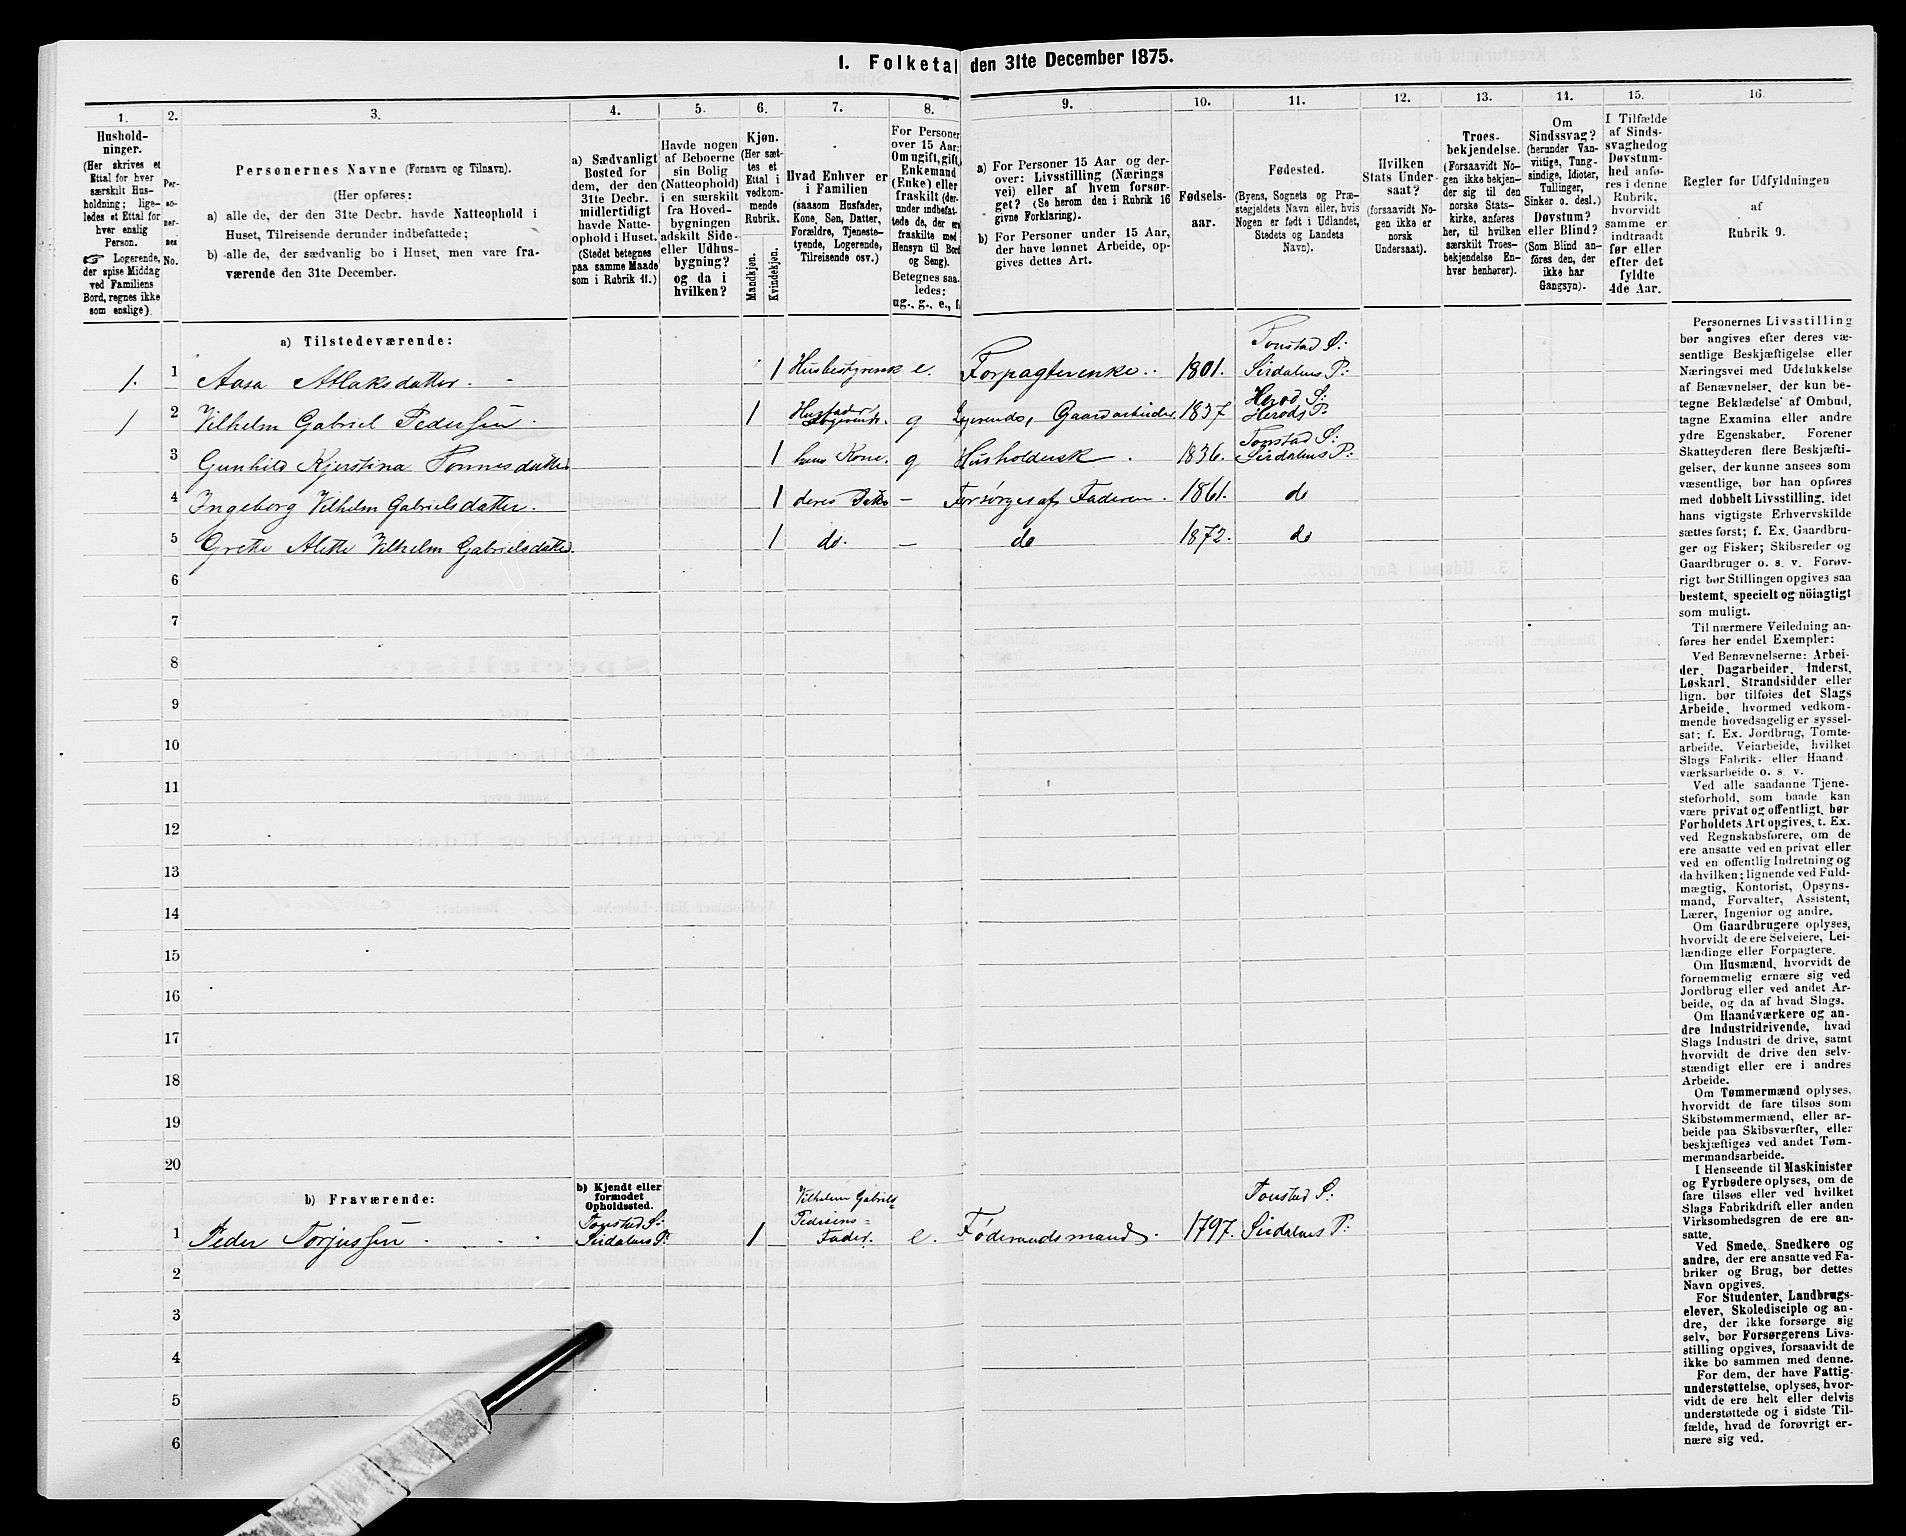 1. Folketal den 31te December 1875.
1. 2. 3. 4. 5. 6. 7. 8. 9. 10. 11. 12. 13. 14. 15. 16.
Hushold-
ninger.
(Her skrives et
Ettal for hver
særskilt Hus-
holdning; lige-
ledes et Ettal for
hver enslig
Person.
Logerende,
der spise Middag
ved Familiens
Bord, regnes ikke
som enslige).
Per-
so-
ner-
nes
No.
Personernes Navne (Fornavn og Tilnavn).
(Her opføres:
a) alle de, der den 31te Decbr. havde Natteophold i
Huset, Tilreisende derunder indbefattede;
b) alle de, der sædvanlig bo i Huset, men vare fra-
værende den 31te December.
a) Sædvanligt
Bosted for
dem, der den
31te Decbr.
midlertidigt
havde Natte-
ophold i Huset.
(Stedet betegnes
paa samme Maade
som i Rubrik 11.)
Havde nogen
af Beboerne
sin Bolig
(Natteophold)
i en særskilt
fra Hoved-
bygningen
adskilt Side-
eller Udhus-
bygning?
og da i
hvilken?
Kjøn.
(Her sæt-
tes et
Ettal i
vedkom-
mende
Rubrik.
Mandkjøn.
Kvindekjøn.
Hvad Enhver er
i Familien
(saasom Husfader,
Kone, Søn, Datter,
Forældre, Tjeneste-
tyende, Logerende,
Tilreisende osv.)
For Personer
over 15 Aar:
Om ugift, gift,
Enkemand
(Enke) eller
fraskilt (der-
under indbefat-
tede de, der ere
fraskilte med
Hensyn til Bord
og Seng).
Betegnes saa-
ledes:
ug., g., e., f.
a) For Personer 15 Aar og der-
over: Livsstilling (Nærings
vei) eller af hvem forsør-
get? (Se herom den i Rubrik 16
givne Forklaring).
b) For Personer under 15 Aar,
der have lønnet Arbeide, op-
gives dettes Art.
Fødsels-
aar.
Fødested.
(Byens, Sognets og Præ-
stegjeldets Navn eller, hvis
Nogen er født i Udlandet,
Stedets og Landets
Navn).
Hvilken
Stats Under-
saat?
(forsaavidt No-
gen ikke er
norsk
Undersaat).
Troes-
bekjendelse.
(Forsaavidt No-
gen ikke bekjen-
der sig til den
norske Stats-
kirke, anføres
her, til hvilken
særskilt Troes-
bekjendelse En-
hver henhører).
Om
Sindssvag?
(herunder Van-
vittige, Tung-
sindige, Idioter,
Tullinger,
Sinker o. desl.)
Døvstum?
eller Blind?
(Som Blind an-
føres den, der
ikke har
Gangsyn).
I Tilfælde
af Sinds-
svaghed og
Døvstum-
hed anfø-
res i denne
Rubrik,
hvorvidt
samme er
indtraadt
før eller
efter det
fyldte
4de Aar.
Regler for Udfyldningen
af
Rubrik 9.
a) Tilstedeværende:
1. 1 Aasa Atlaksdatter. 1 Husbestyrersk e. Forpagterenke. 1801. Tonstad S: Sirdalens P:
1 2 Vilhelm Gabriel Pedersen. 1 Husfader Logerende. g Logerende, Gaardarbeider. 1837 Herod S: Herods P:
3 Gunhild Kjerstina Tonnesdatter 1 hans Kone. g Husholdersk. 1836. Tonstad S: Sirdalens P:
4 Ingeborg Vilhelm Gabrielsdatter. 1 deres Datter – Forsørges af Faderen. 1861. do
5 Grethe Alette Vilhelm Gabrielsdatter. 1 do. – do 1872. do
6
7
8
9
10
11
12
13
14
15
16
17
18
19
20
b) Fraværende:
b) Kjendt eller
formodet
Opholdssted.
1 Peder Torjussen. Tonstad S: Sirdalens P: 1 Vilhelm Gabriels Pedersens Fader. e. Føderaadsmand. 1797. Tonstad S: Sirdalens P:
2
3
4
5
6
Personernes Livsstilling
bør angives efter deres væ-
sentlige Beskjæftigelse eller
Næringsvei med Udelukkelse
af Benævnelser, der kun be-
tegne Beklædelse af Ombud,
tagne Examina eller andre
ydre Egenskaber. Forener
Skatteyderen flere Beskjæfti-
gelser, der kunne ansees som
væsentlige, bør han opføres
med dobbelt Livsstilling, idet
hans vigtigste Erhvervskilde
sættes først; f. Ex. Gaardbru-
ger og Fisker; Skibsreder og
Gaardbruger o. s. v. Forøv-
rigt bør Stillingen opgives saa
bestemt, specielt og nöiagtigt
som muligt.
Til nærmere Veiledning an-
føres her endel Exempler:
Ved Benævnelserne: Arbei-
der, Dagarbeider, Inderst,
Løskarl, Strandsidder eller
lign. bør tilføies det Slags
Arbeide, hvormed vedkom-
mende hovedsagelig er syssel-
sat; f. Ex. Jordbrug, Tomte-
arbeide, Veiarbeide, hvilket
Slags Fabrik- eller Haand
værksarbeide o. s. v.
Ved alle saadanne Tjene-
steforhold, som baade kan
være privat og offentligt, bør
Forholdets Art opgives, t. Ex.
ved Regnskabsførere, om de
ere ansatte ved en privat eller
ved en offentlig Indretning og
da hvilken; lignende ved Fuld-
mægtig, Kontorist, Opsyns-
mand, Forvalter, Assistent,
Lærer, Ingeniør og andre.
Om Gaardbrugere oplyses,
hvorvidt de ere Selveiere, Lei-
lændinge eller Forpagtere.
Om Husmænd, hvorvidt de
fornemmelig ernære sig ved
Jordbrug eller ved andet Ar-
beide, og da af hvad Slags.
Om Haandværkere og an-
dre Industridrivende, hvad
Slags Industri de drive, samt
hvorvidt de drive den selv-
stændigt eller ere i andres
Arbeide.
Om Tømmermænd oplyses,
hvorvidt de fare tilsøs som
Skibstømmermænd, eller ar-
beide paa Skibsværfter, eller
beskjæftiges ved andet Tøm-
mermandsarbeide.
I Henseende til Maskinister
og Fyrbødere oplyses, om de
fare tilsøs eller ved hvilket
Slags Fabrikdrift eller anden
Virksomhedsgren de ere an-
satte.
Ved Smede, Snedkere og
andre, der ere ansatte ved Fa-
briker og Brug, bør dettes
Navn opgives.
For Studenter, Landbrugs-
elever, Skoledisciple og an-
dre, der ikke forsørge sig
selv, bør Forsørgerens Livs-
stilling opgives, forsaavidt de
ikke bo sammen med denne.
For dem, der have Fattig-
understøttelse, oplyses, hvor-
vidt de ere helt eller delvis
understøttede og i sidste Til-
fælde, hvad de forøvrigt er-
nære sig ved.